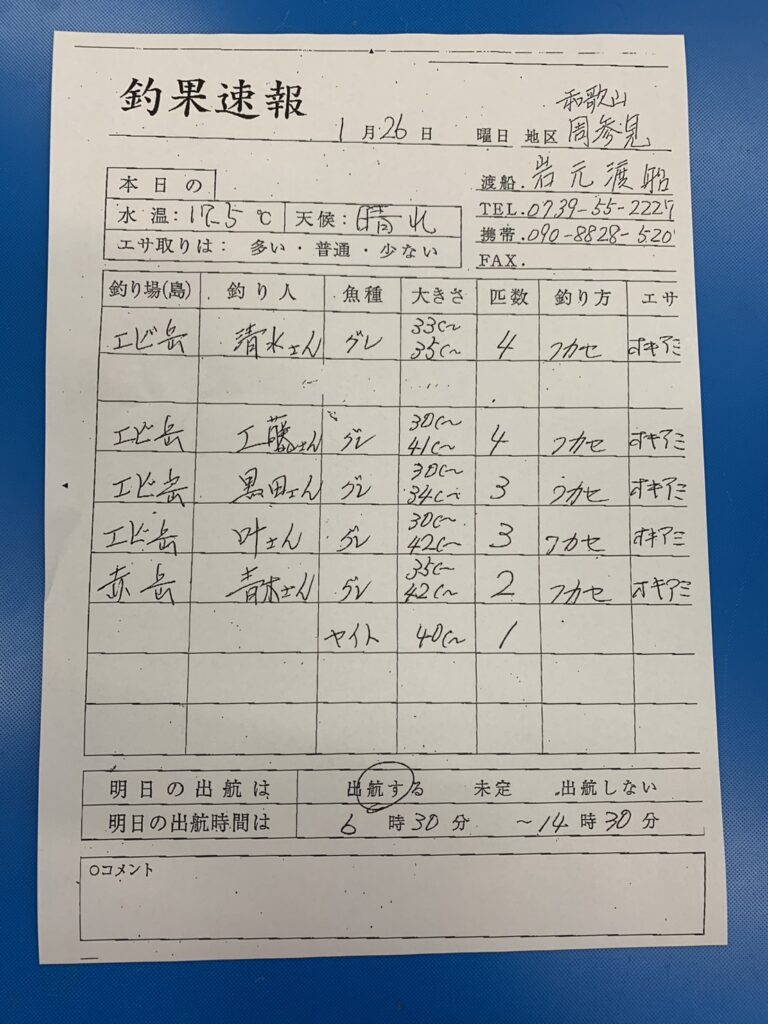 釣果速報
和歌山
1月26日 曜日 地区 周参見
渡船.岩元渡船
本日の
TEL.0739-55-2227
水温:17.5℃ 天候:晴れ
携帯.090-8828-520
エサ取りは: 多い・普通・少ない
FAX.
釣り場(島) 釣り人 魚種 大きさ 匹数 釣り方 エサ
エビ岳 清水さん グレ 33㎝~35㎝ 4 フカセ オキアミ
エビ岳 工藤さん グレ 30㎝~41㎝ 4 フカセ オキアミ
エビ岳 黒田さん グレ 30㎝~34㎝ 3 フカセ オキアミ
エビ岳 叶さん グレ 30㎝~42㎝ 3 フカセ オキアミ
赤岳 青木さん グレ 35㎝~42㎝ 2 フカセ オキアミ
ヤイト 40㎝ 1
明日の出航は 出航する 未定 出航しない
明日の出航時間は 6時30分 ~14時30分
○コメント